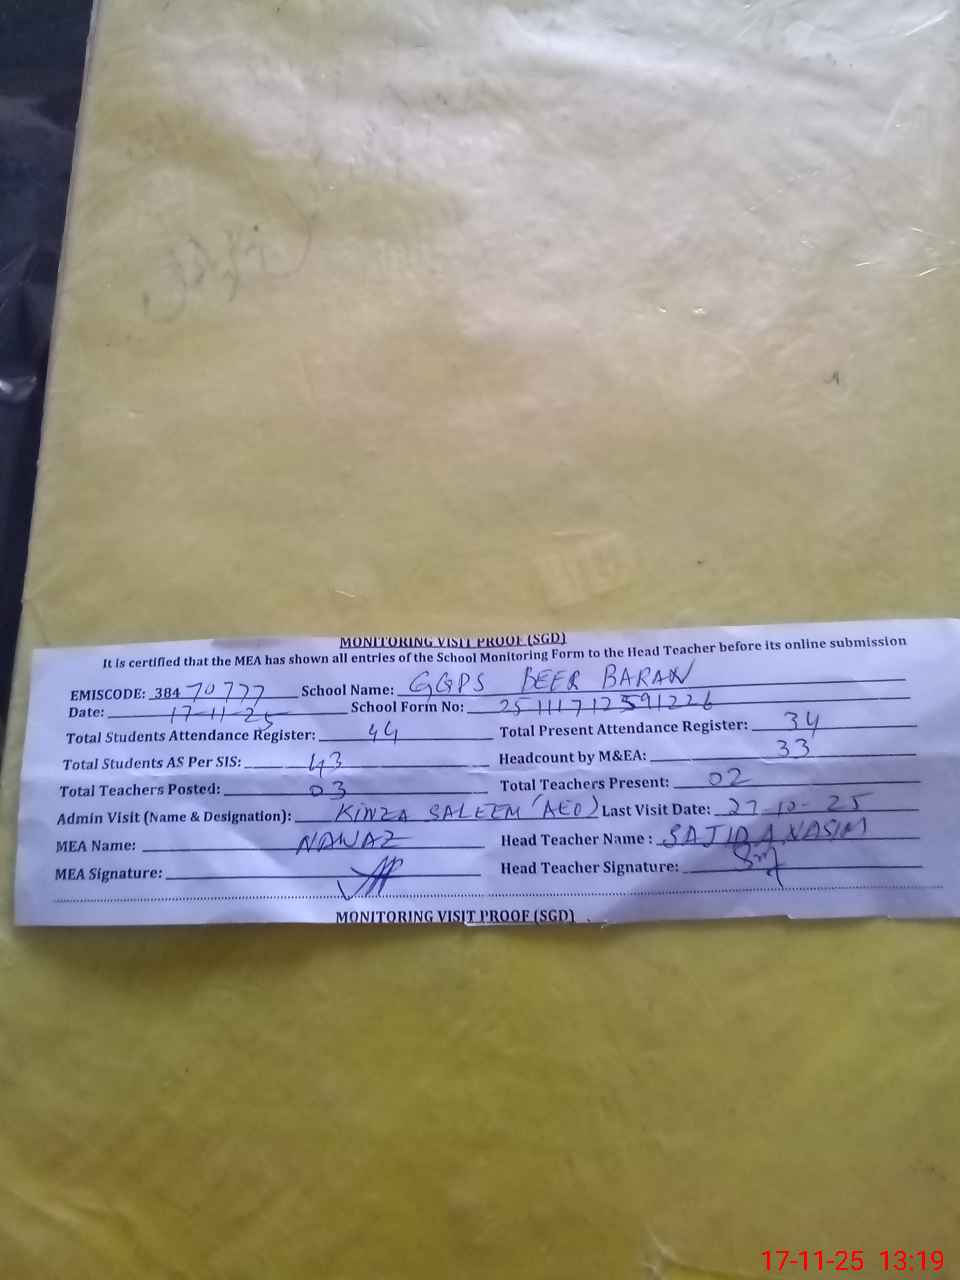 MONITORING VISIT PROOF (SGD)
It is certified that the MEA has shown all entries of the School Monitoring Form to the Head Teacher before its online submission
EMISCODE: 384 70777 School Name: GGPS BEER BARAN
Date: 17-11-25 School Form No: 2511171259 1226
Total Students Attendance Register: 44 Total Present Attendance Register: 34
Total Students AS Per SIS: 43 Headcount by M&EA: 33
Total Teachers Posted: 03 Total Teachers Present: 02
Admin Visit (Name & Designation): KINZA SALEEM (AEO) Last Visit Date: 27-10-25
MEA Name: NAWAZ Head Teacher Name: SAJIDA NASIM
MEA Signature: Head Teacher Signature:
MONITORING VISIT PROOF (SGD)
17-11-25 13:19